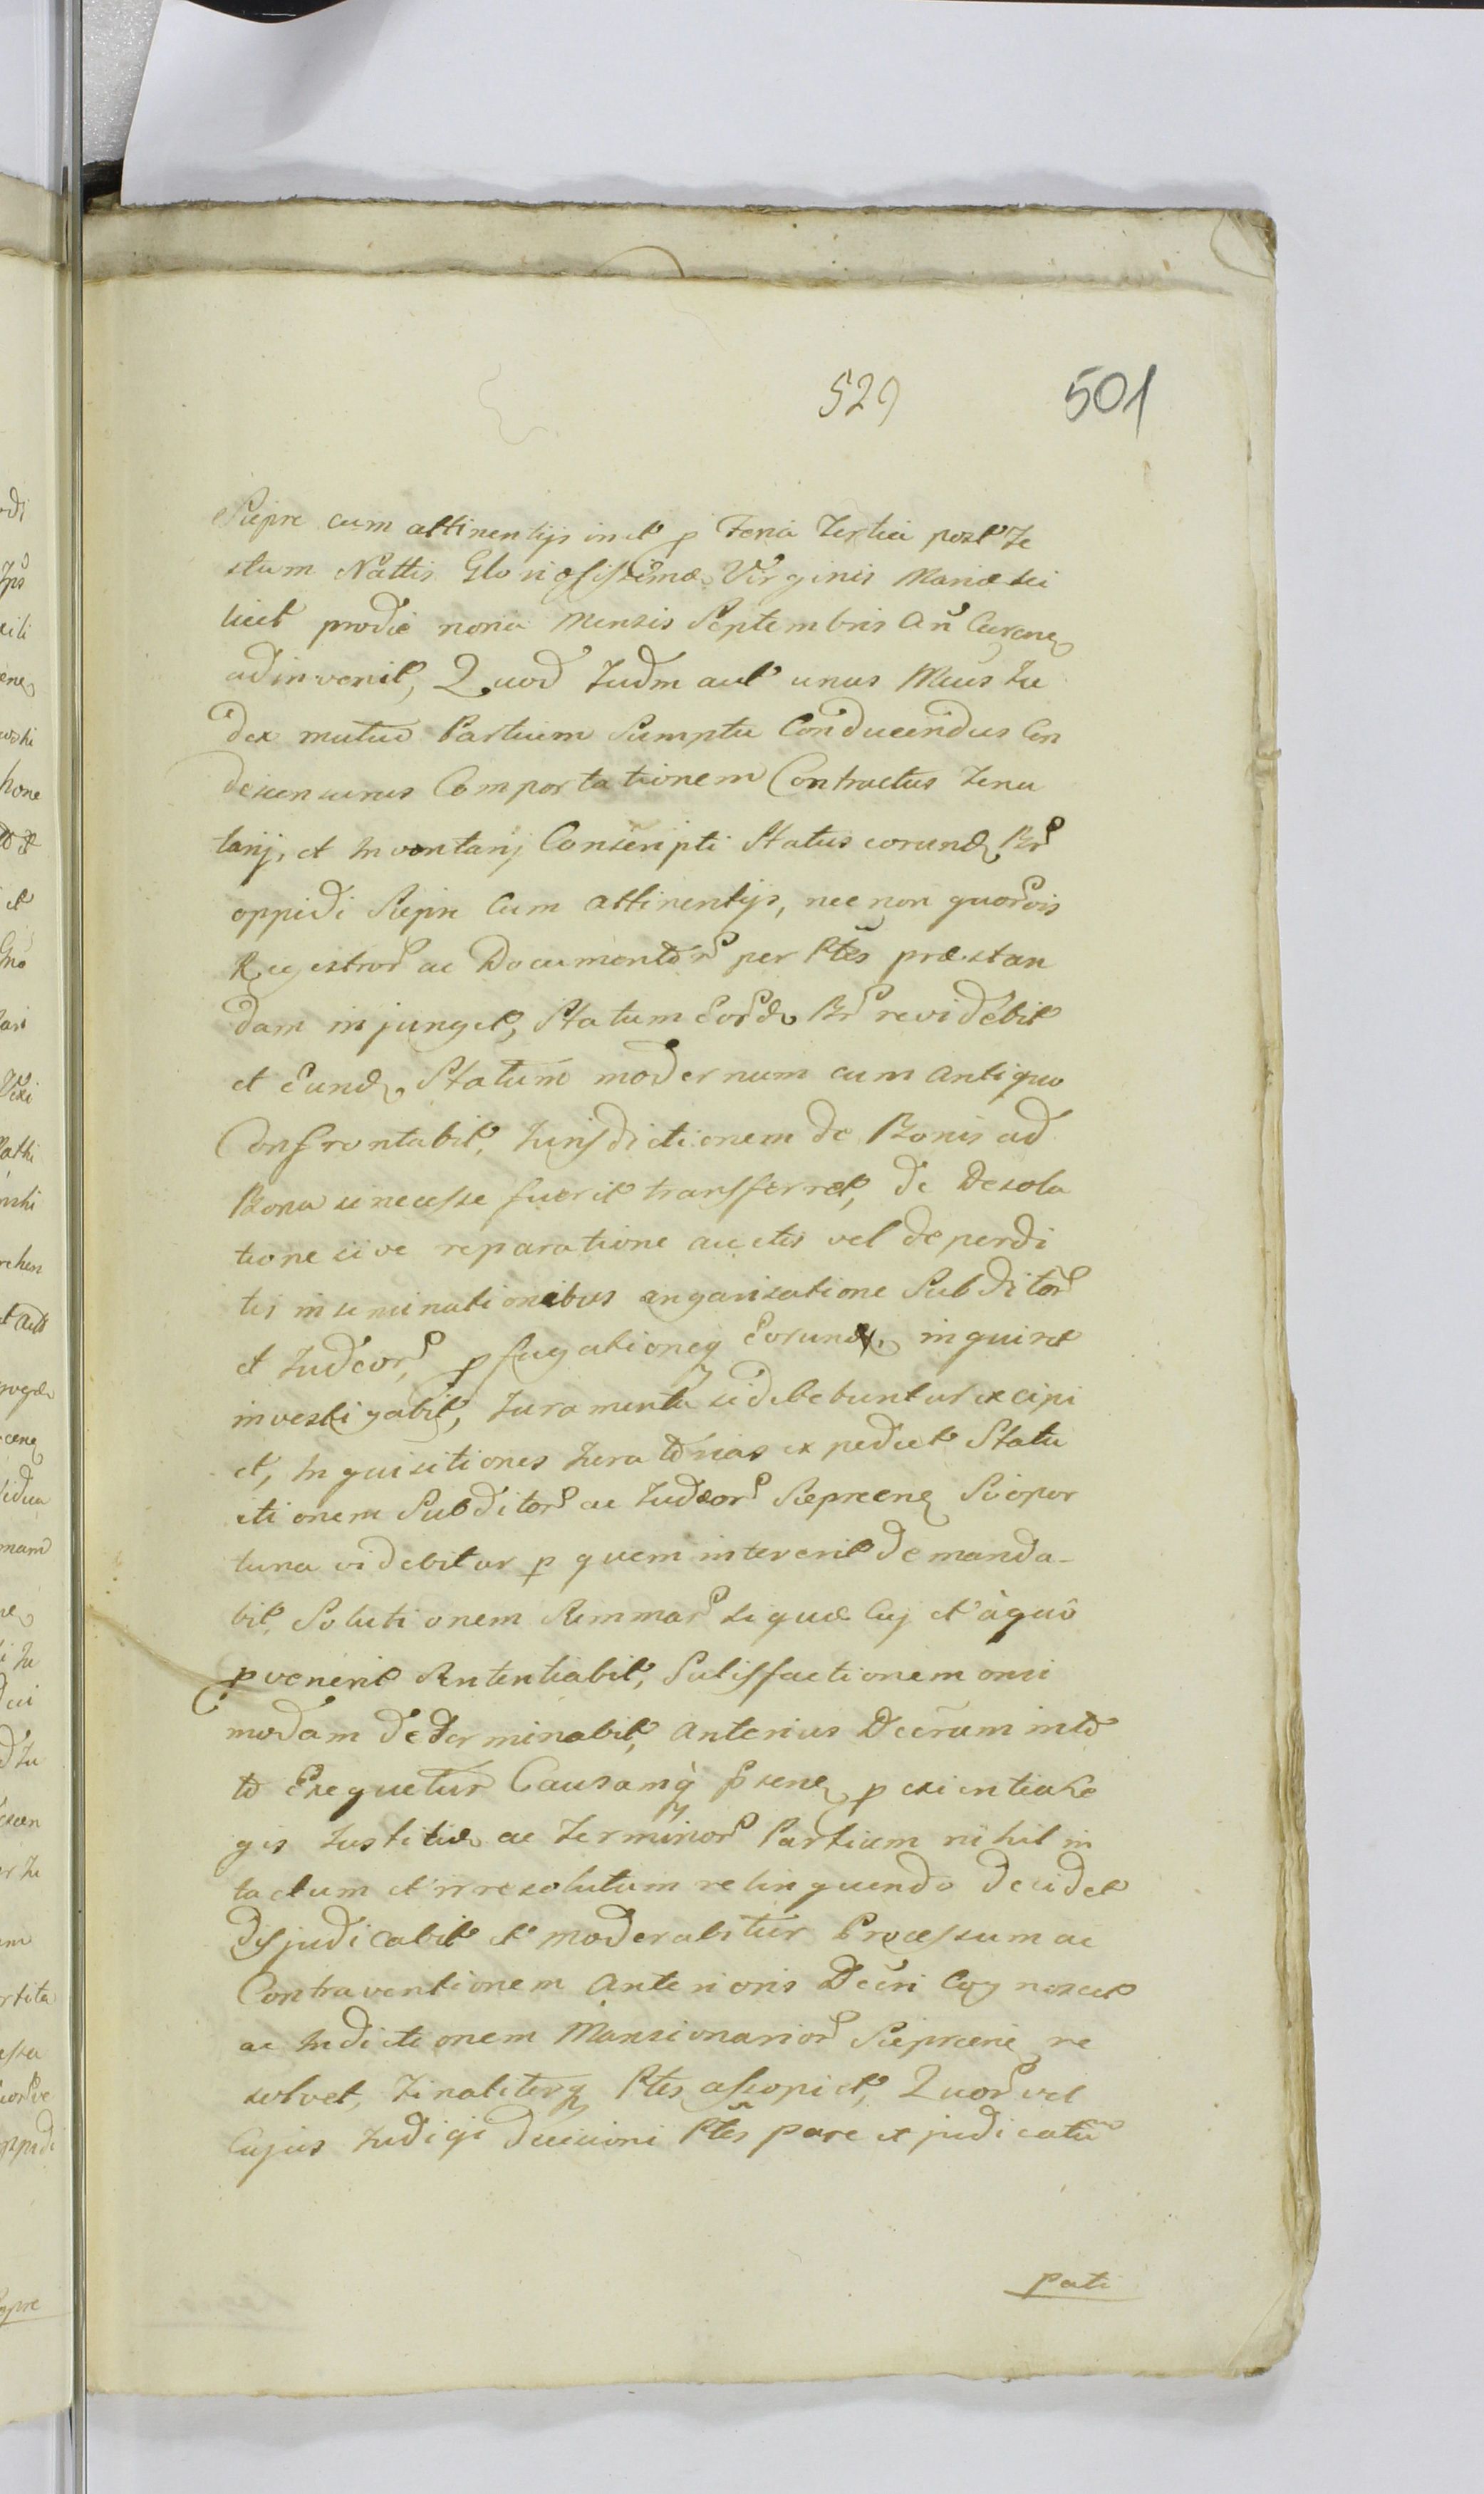 529 501
Siepre cum attinentijs in et p Feria Tertia post Fe
stum Nattis Gloriosissimæ Virginis Mariæ sci
licet pro die nona Mensis Septembris Añ Curen
adinvenit, Quod Judm aut unus Mius Ju
dex mutuo Partium Sumptu Conducendus Con
descensurus Comportationem Contractus Tenu
tarij, et Inventarij Conscripti Status eorund Br
oppidi Siepre Cum attinentijs, nec non quorvis
Registror ac Documentor per Ptes præstan
dam injunget, Statum Eord Br revidebit
et Eund Statum modernum cum antiquo
Confrontabit, Jurisdictionem de Bonis ad
Bona si necesse fuerit transferret, de Desola
tione sive reparatione auctis vel deperdi
tis inseminationibus angarisatione Subditor
et Judeor, pfugationeq Eorund inquiret
investigabit, Juramenta si debebuntur excipi
et, Inquisitiones Juratorias expediet Statu
itionem Subditor ac Judæor Siepreen Si opor
tuna videbitur p quem intererit demanda-
bit, Solutionem Summar si quæ Cuj et à quô
pvenerit Sententiabit, Satisfactionem omi
modam determinabit, anterius Decrum in to
to Exequetur Causamq psen p exientia Le
gis Justitiæ ac Terminor Partium nihil in
tactum et irresolutum relinquendo decidet
disjudicabit et moderabitur Processum ac
Contraventionem anterioris Decri Cognoscet
ac Indictionem Mansionarior Siepreen re
solvet, Finaliterq Ptes assopiet, Quor vel
Cujus Judicij decisioni Ptes pare et judicatu
pati